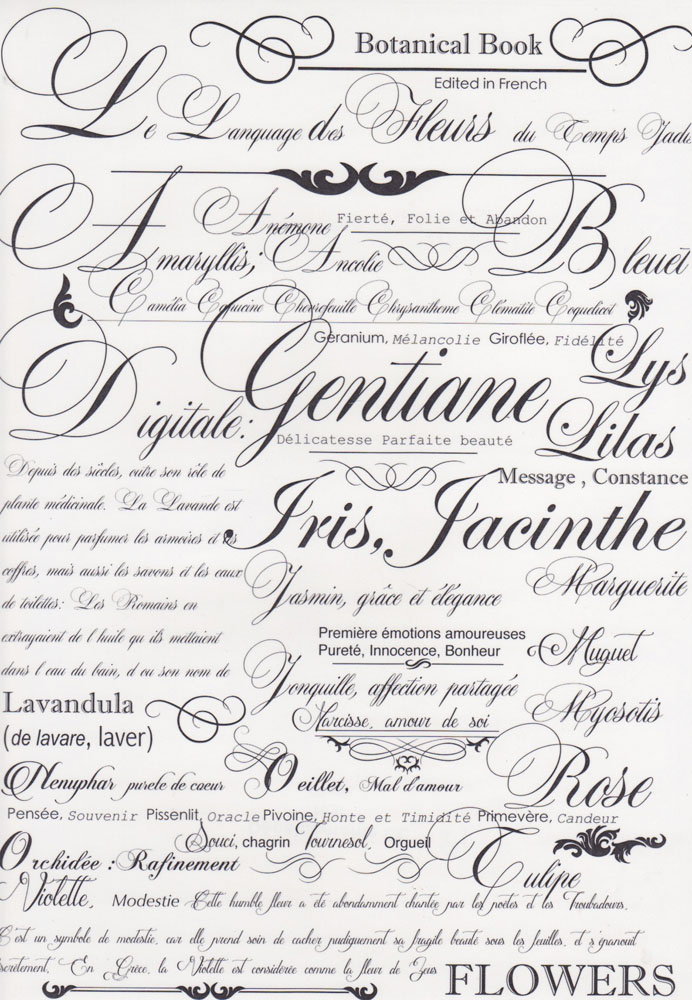 Botanical Book
Edited in French
Le Language des Fleurs du Temps Jadis
Anémone Fierté, Folie et Abandon
Amaryllis; Ancolie Bleuet
Camélia Capucine Chevrefeuille Chrysantheme Clématite Coquelicot
Géranium, Mélancolie Giroflée, Fidélité
Lys
Gentiane
Digitale:
Lilas
Délicatesse Parfaite beauté
Message , Constance
Depuis des siècles, outre son rôle de
plante médicinale. La Lavande est
utilisée pour parfumer les armoires et les
coffres, mais aussi les savons et les eaux
de toilettes: Les Romains en
extrayaient de l huile qu ils mettaient
dans l eau du bain, d ou son nom de
Lavandula
(de lavare, laver)
Iris, Jacinthe
Jasmin, grâce et élégance
Marguerite
Première émotions amoureuses
Pureté, Innocence, Bonheur
Muguet
Jonquille, affection partagée
Narcisse, amour de soi
Myosotis
Nenuphar purete de coeur Oeillet, Mal d'amour
Rose
Pensée, Souvenir Pissenlit, Oracle Pivoine, Honte et Timidité Primevère, Candeur
Souci, chagrin Tournesol, Orgueil
Orchidée : Rafinement
Tulipe
Violette, Modestie Cette humble fleur a été abondamment chantée par les poètes et les Troubadours.
C'est un symbole de modestie, car elle prend soin de cacher pudiquement sa fragile beauté sous les feuilles, et s'épanouit
scrètement. En Grèce, la Violette est considérée comme la fleur de Zeus
FLOWERS